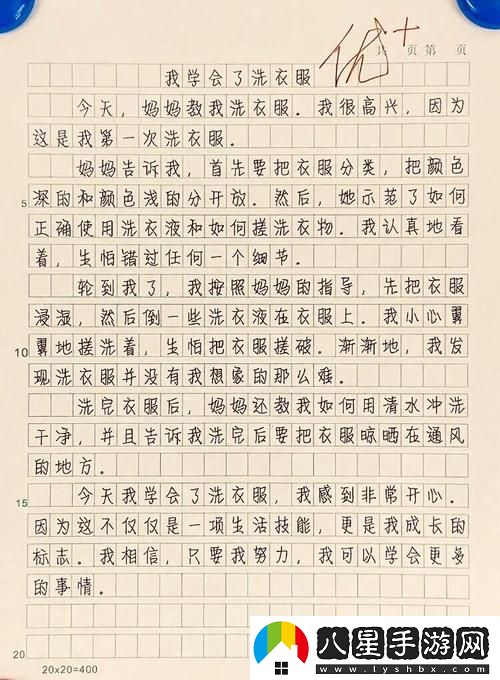 优+
共 页 第 页
我学会了洗衣服
今天，妈妈教我洗衣服。我很高兴，因为
这是我第一次洗衣服。
妈妈告诉我，首先要把衣服分类，把颜色
5 深的和颜色浅的分开放。然后，她示范了如何
正确使用洗衣液和如何搓洗衣物。我认真地看
着，生怕错过任何一个细节。
轮到我了，我按照妈妈的指导，先把衣服
浸湿，然后倒一些洗衣液在衣服上。我小心翼
10 翼地搓洗着，生怕把衣服搓破。渐渐地，我发
现洗衣服并没有我想象的那么难。
洗完衣服后，妈妈还教我如何用清水冲洗
干净，并且告诉我洗完后要把衣服晾晒在通风
的地方。
15 今天我学会了洗衣服，我感到非常开心。
因为这不仅仅是一项生活技能，更是我成长的
标志。我相信，只要我努力，我可以学会更多
的事情。
20
20×20=400
八星手游网
www.lyshbx.com